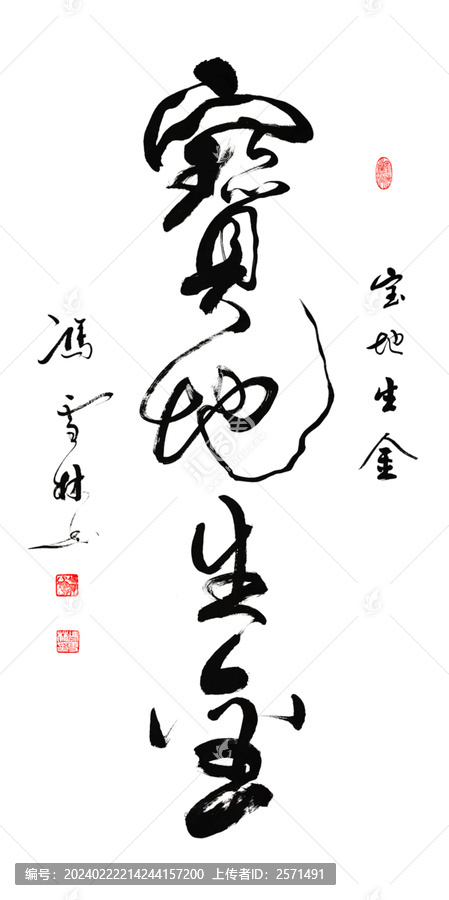 宝地生金
寶地生金
馮雪林书
编号：20240222214244157200 上传者ID：2571491